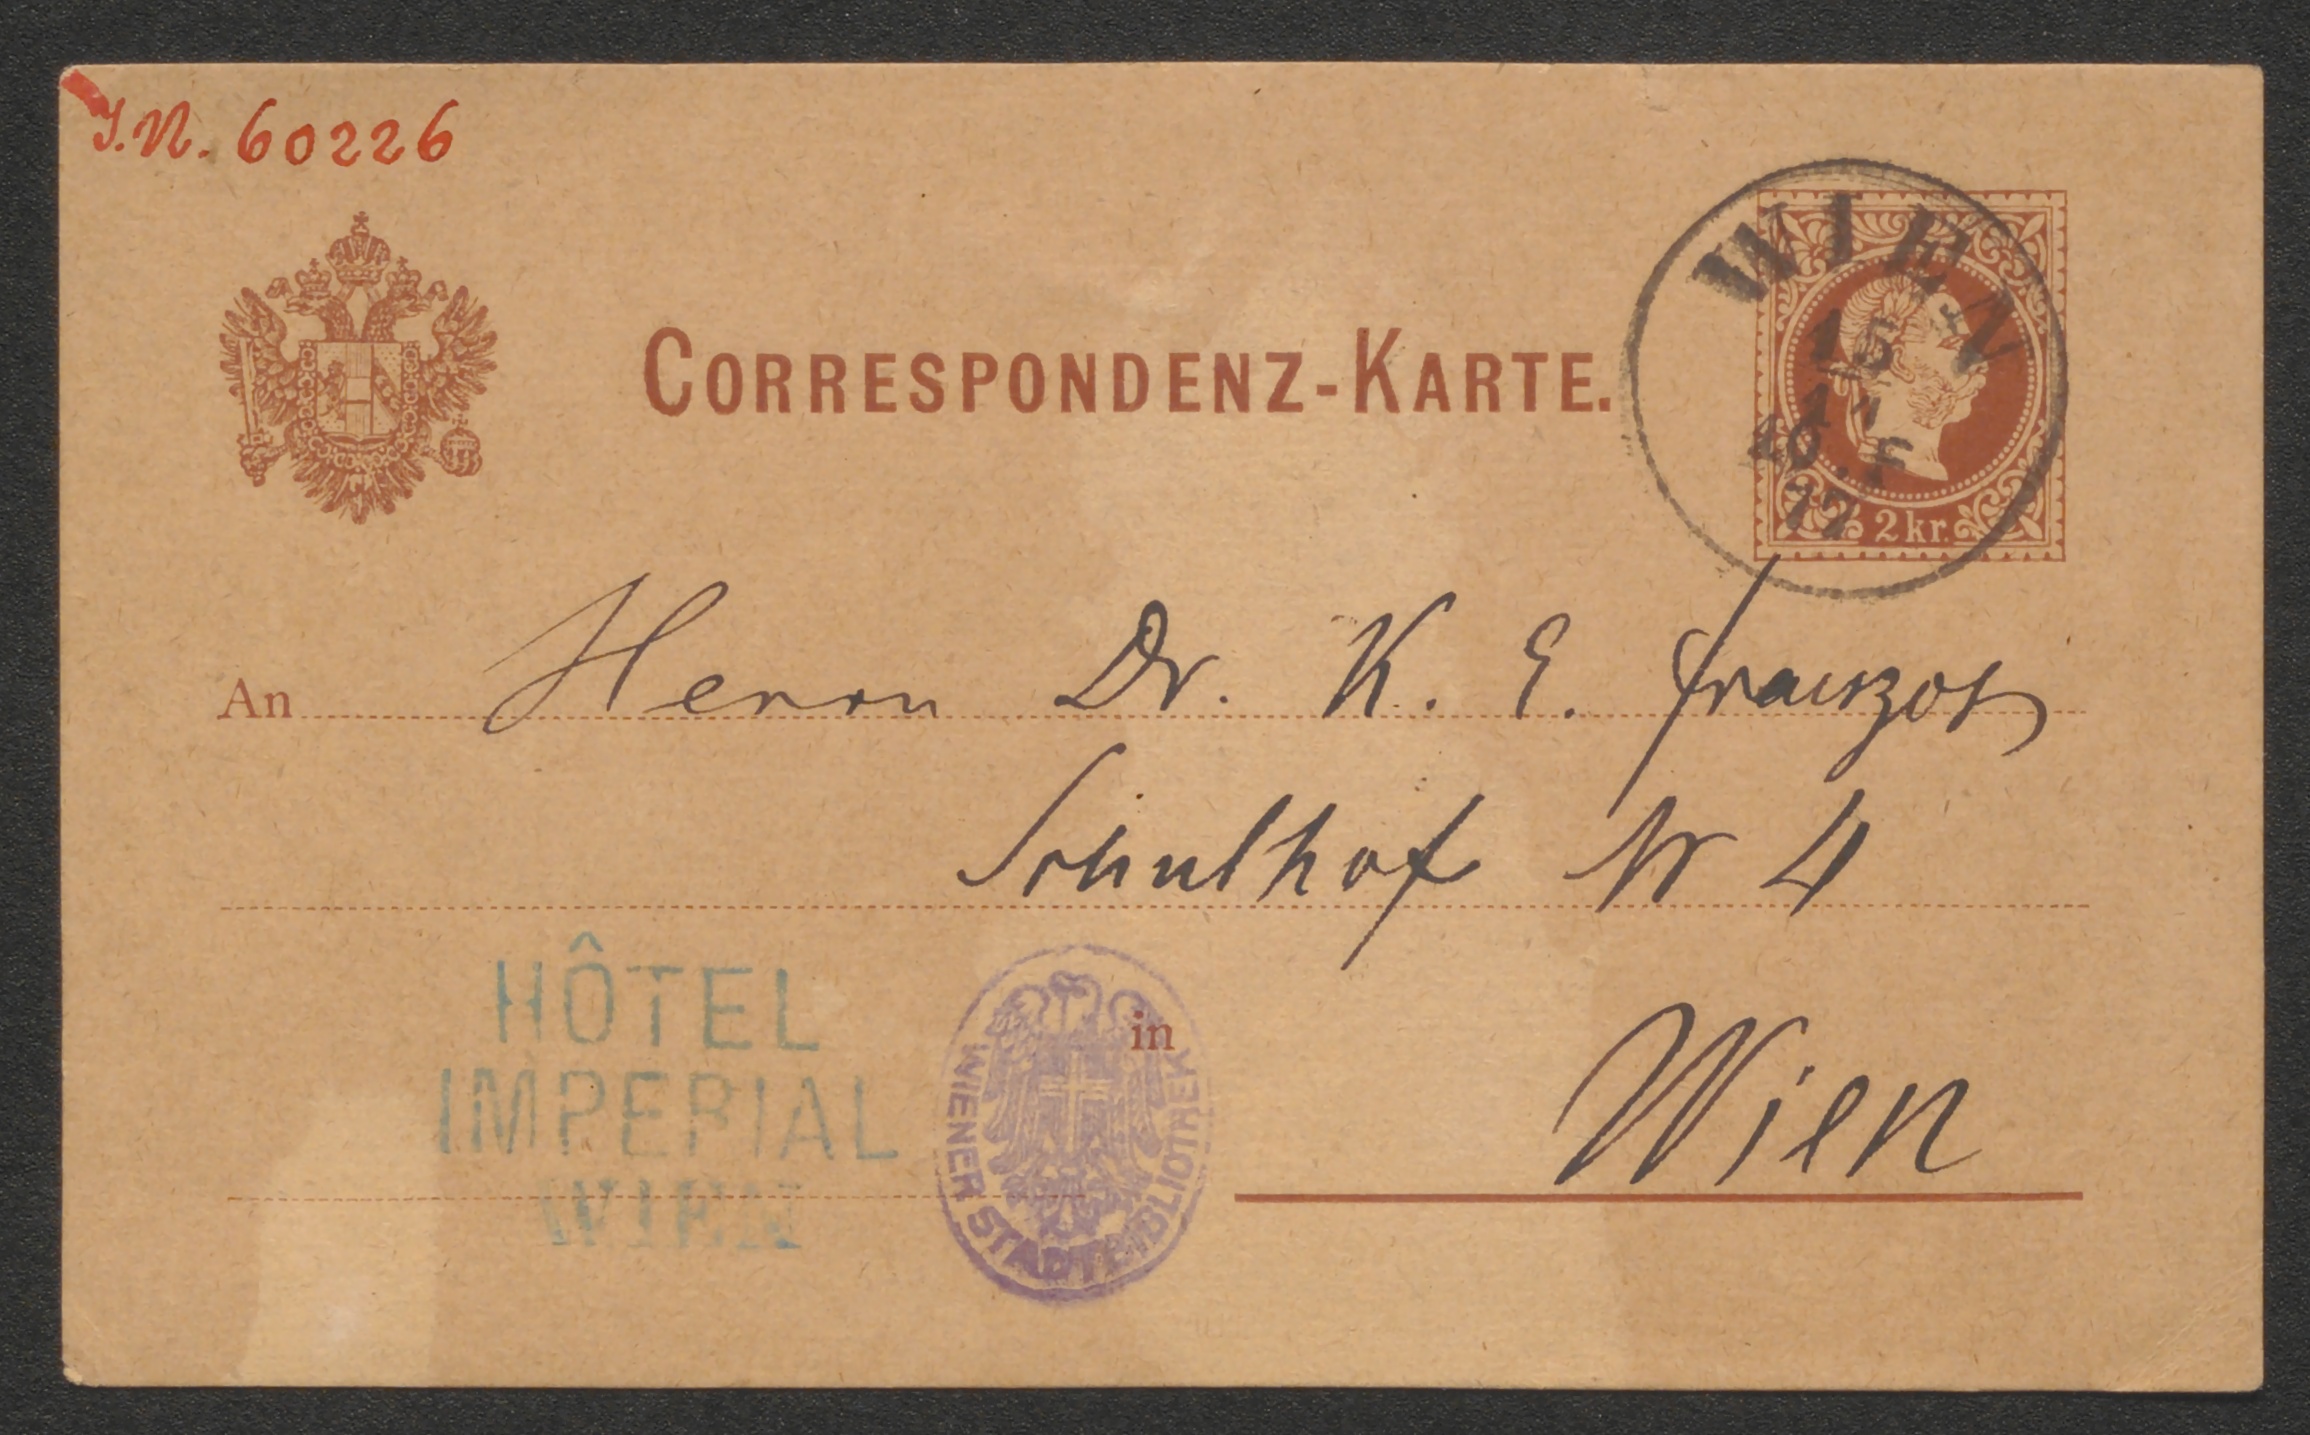 J.N. 60226
CORRESPONDENZ-KARTE.
WIEN
15
10.F
77
2 kr.
An Herrn Dr. K. E. Franzos
Schulhof Nr 4
HÔTEL
IMPERIAL
WIEN
WIENER STADTBIBLIOTHEK
in Wien